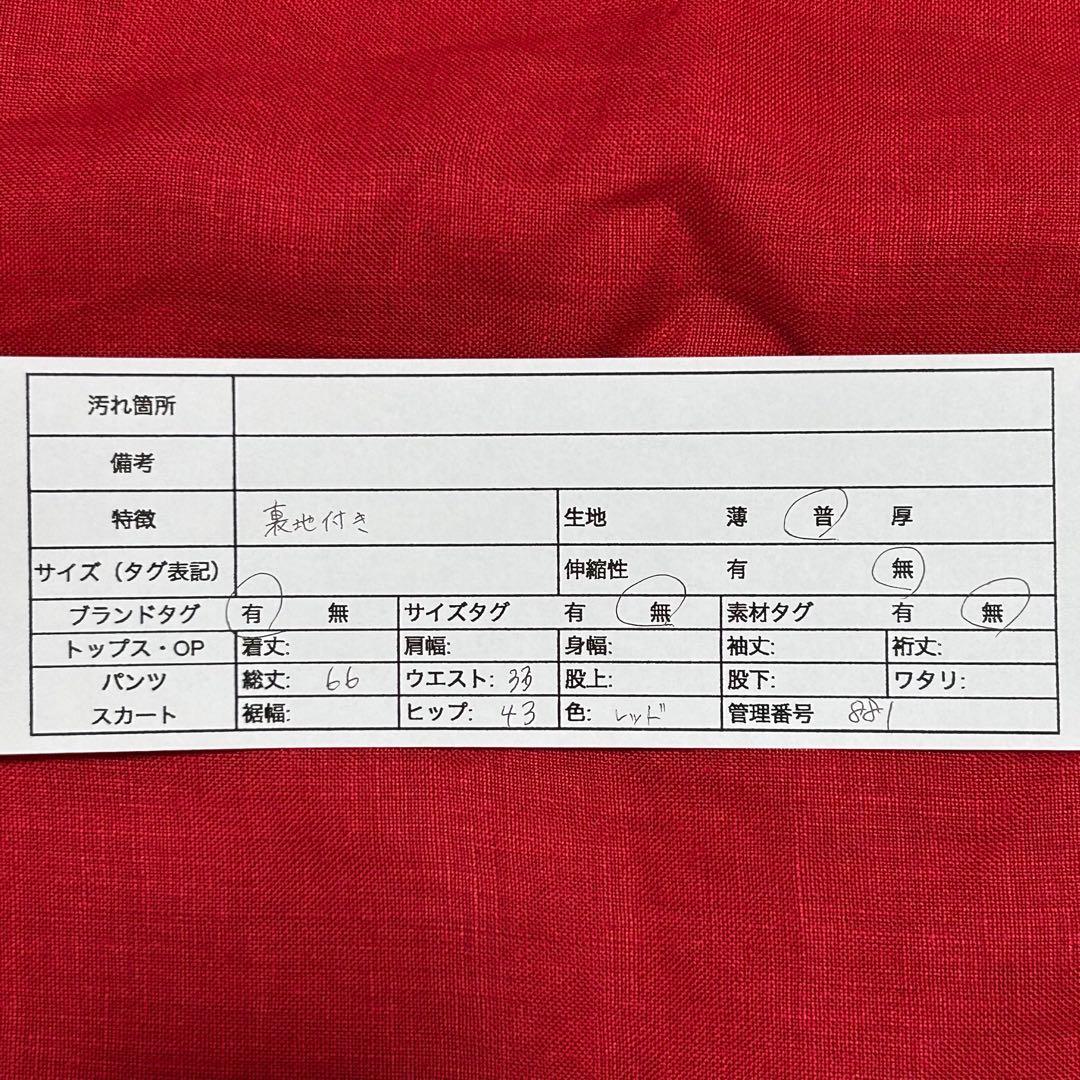 汚れ箇所
備考
特徴 裏地付き 生地 薄 普 厚
サイズ（タグ表記） 伸縮性 有 無
ブランドタグ 有 無 サイズタグ 有 無 素材タグ 有 無
トップス・OP 着丈: 肩幅: 身幅: 袖丈: 裄丈:
パンツ 総丈: 66 ウエスト: 33 股上: 股下: ワタリ:
スカート 裾幅: ヒップ: 43 色: レッド 管理番号 881